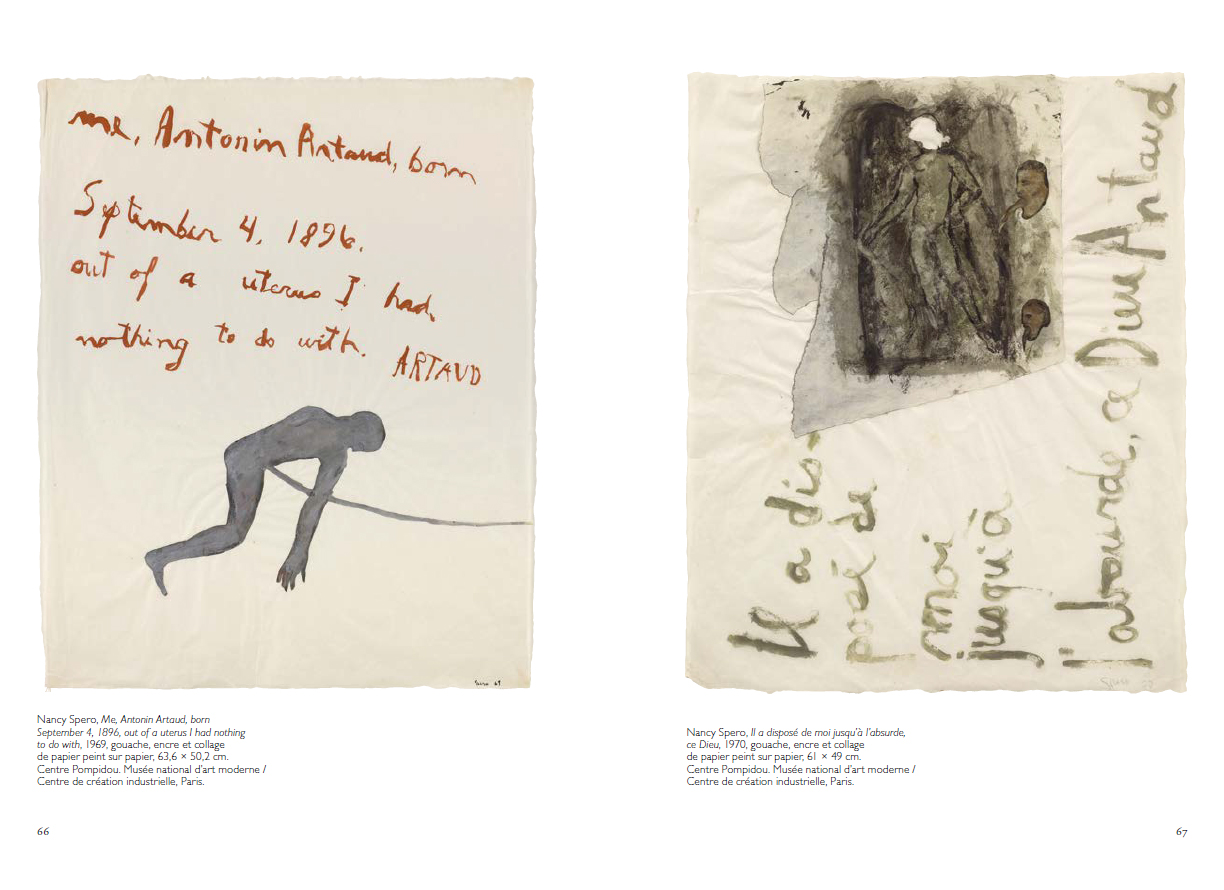 me, Antonin Artaud, born
September 4, 1896.
out of a uterus I had
nothing to do with. ARTAUD
Spero 69
Nancy Spero, Me, Antonin Artaud, born
September 4, 1896, out of a uterus I had nothing
to do with, 1969, gouache, encre et collage
de papier peint sur papier, 63,6 × 50,2 cm.
Centre Pompidou. Musée national d'art moderne /
Centre de création industrielle, Paris.
66
Il a dis-
posé de
moi
jusqu'à
l'absurde, ce Dieu Artaud
Nancy Spero, Il a disposé de moi jusqu'à l'absurde,
ce Dieu, 1970, gouache, encre et collage
de papier peint sur papier, 61 × 49 cm.
Centre Pompidou. Musée national d'art moderne /
Centre de création industrielle, Paris.
67